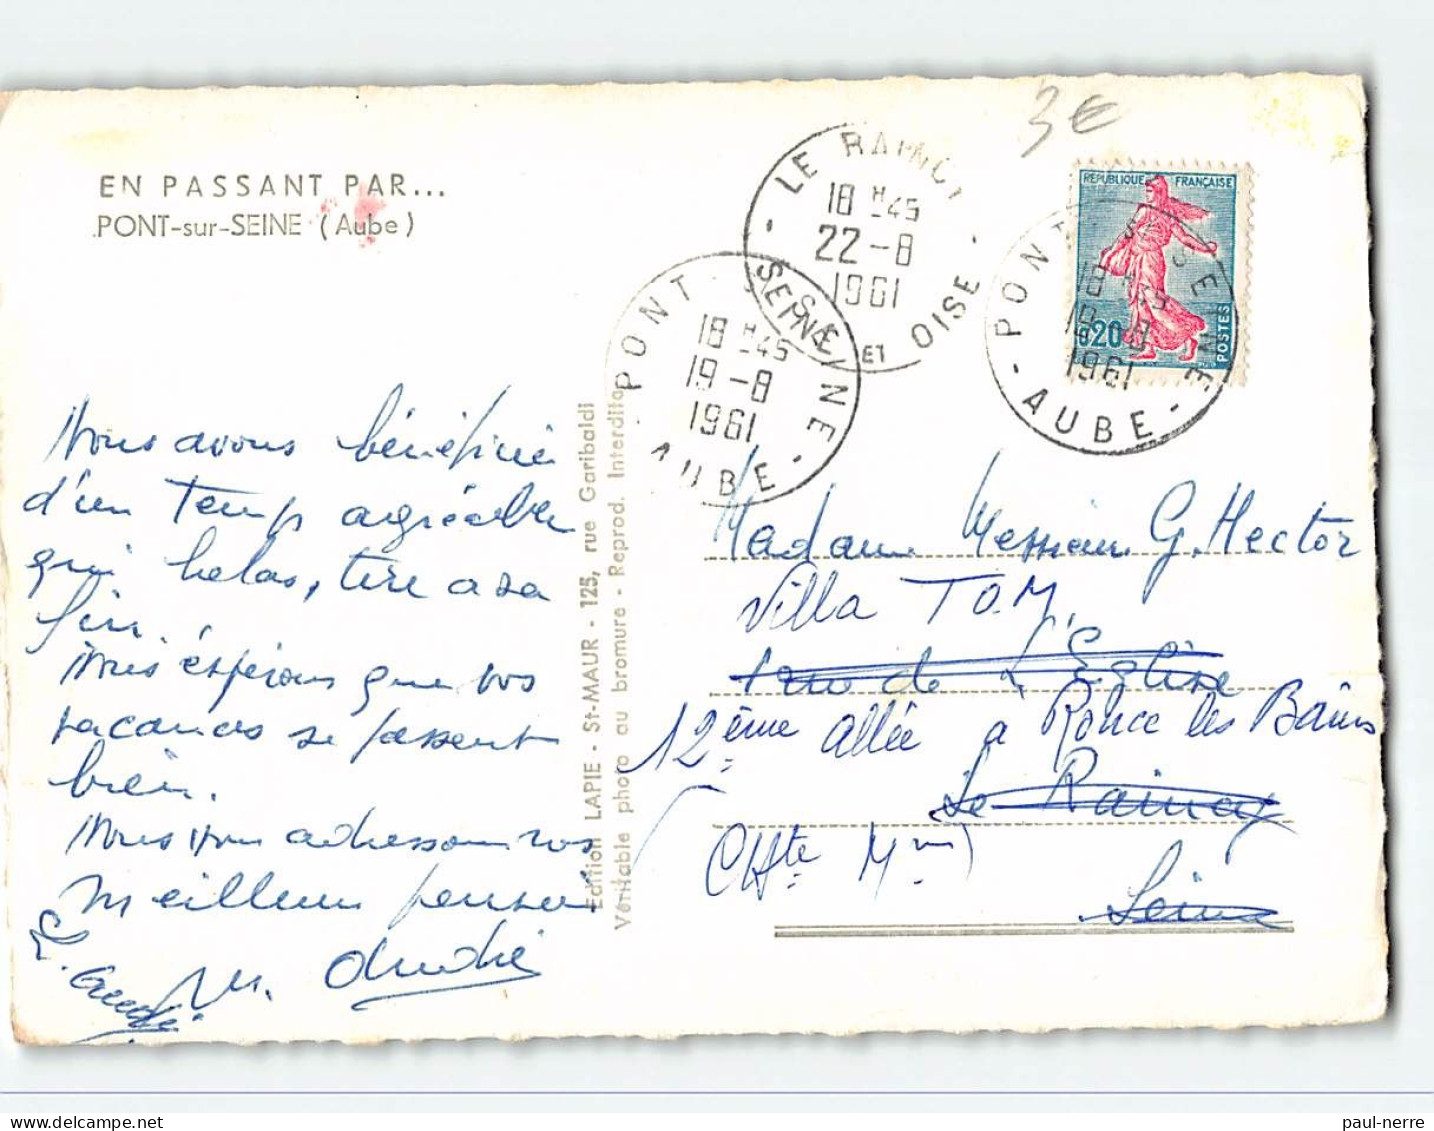 3€
EN PASSANT PAR...
PONT-sur-SEINE (Aube)
LE RAINCY
18 H 45
22-8
1961
SEINE ET OISE
PONT S/ SEINE
18 H 45
19-8
1961
AUBE
RÉPUBLIQUE FRANÇAISE
0,20
POSTES
PONT S/ SEINE
18 H 45
19-8
1961
AUBE
Nous avons bénéficié
d'un temps agréable
qui helas, tire a sa
fin.
Nous éspérons que vos
vacances se passent
bien.
Nous vous adressons nos
meilleures pensées
André
Edition LAPIE - St-MAUR - 125, rue Garibaldi
Véritable photo au bromure - Reprod. Interdite
Madame Messieurs G. Hector
Villa TOM
rue de L'Eglise
12ème allée a Ronce les Bains
Le Raincy
(Chte Mme)
Seine
paul-nerre